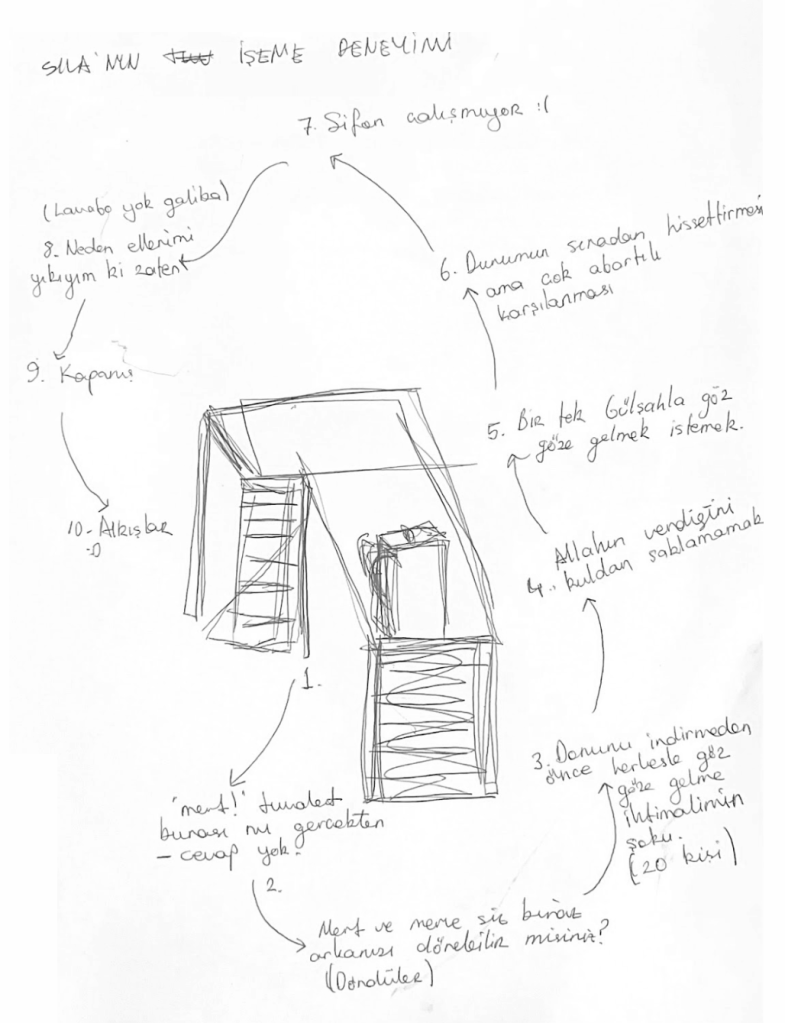 SILA'NIN İŞEME DENEYİMİ
7. Sifon calısmıyor :(
(Lavabo yok galiba)
8. Neden ellerimi
yıkıyım ki zaten
9. Kapanış
10- Alkışlar
:o
6. Durumun sıradan hissettirmesi
ama cok abartılı
karşılanması
5. Bir tek Gülşahla göz
göze gelmek istemek.
Allahın verdiğini
4.. kuldan saklamamak
3. Donunu indirmeden
önce herkesle göz
göze gelme
ihtimalimin
şoku.
(20 kişi)
1.
'mert!' tuvalet
burası mı gercekten
- cevap yok.
2.
Mert ve merve siz biraz
arkanızı dönebilir misiniz?
(Döndüler)